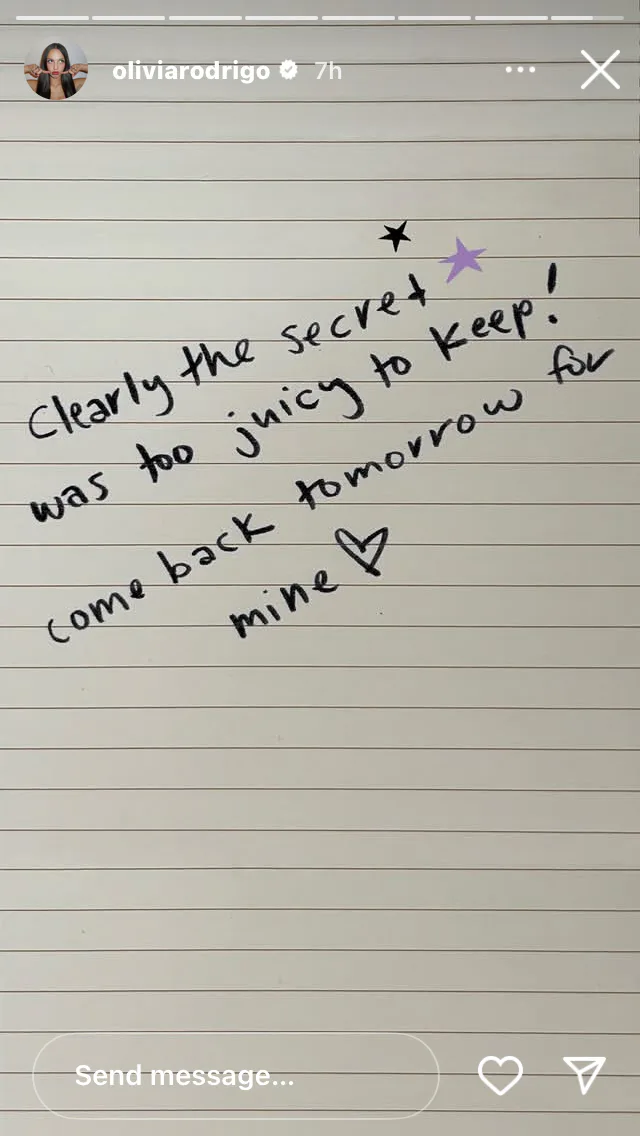 oliviarodrigo 7h
Clearly the secret
was too juicy to keep!
come back tomorrow for
mine
Send message...